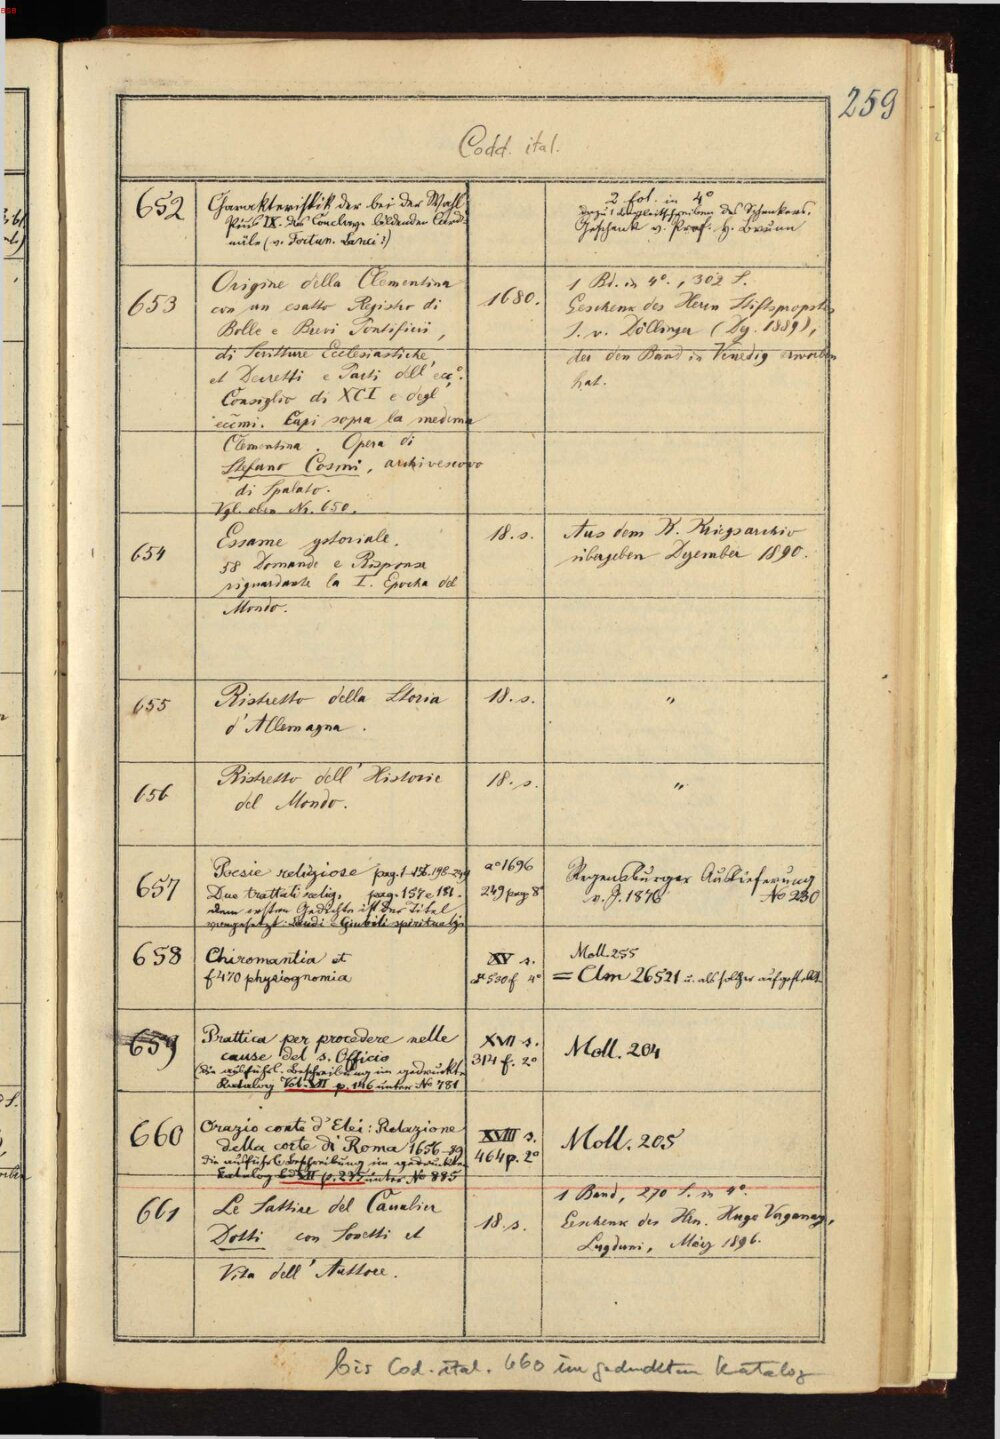 BSB
259
Codd. ital.
652
Charakteristik der bei der Wahl
Pius IX. das Conclave bildenden Cardi-
näle (v. Fortun. Lanci?)
2 fol. in 4°
dazu 1 Begleitschreiben des Schenkers.
Geschenk v. Prof. H. Brunn
653
Origine della Clementina
con un esatto Registro di
Bolle e Brevi Pontificii,
di Scritture Ecclesiastiche,
et Decretti e Parti dell' ecc.°
Consiglio di XCI e degl'
eccmi. Capi sopra la medema
Clementina. Opera di
Stefano Cosmi, archivescovo
di Spalato.
Vgl. oben Nr. 650.
1680.
1 Bd. in 4°., 302 S.
Geschenk des Herrn Stiftspropstes
J. v. Döllinger (Dz. 1889),
der den Band in Venedig erworben
hat.
654
Essame ystoriale.
58 Domande e Risponse
riguardante la I. Epocha del
Mondo.
18. s.
Aus dem K. Kriegsarchiv
übergeben Dezember 1890.
655
Ristretto della Storia
d'Allemagna.
18. s.
"
656
Ristretto dell' Historie
del Mondo.
18. s.
"
657
Poesie religiose pag. 1-156. 198-249
Due trattati relig. pag. 157 e 181.
dem ersten Gedichte ist der Titel
vorgesetzt: Laudi e Giubili spirituali.
a° 1696
249 pag. 8°
Regensburger Auslieferung
v. J. 1876 No 230
658
Chiromantia et
f 470 physiognomia
XV s.
530 f 4°
Moll. 255
= Clm 26521 u. als solcher aufgestellt
659
Prattica per procedere nelle
cause del s. Officio
(die ausführl. Beschreibung im gedruckt.
Katalog Vol. VII p. 146 unter No 781
XVII s.
314 f. 2°
Moll. 204
660
Orazio conte d'Elci: Relazione
della corte di Roma 1656-
die ausführl. Beschreibung im gedruckten
Katalog VII p. 235 unter No 885
XVIII s.
464 p. 2°
Moll. 205
661
Le Sattire del Caualier
Dotti con Sonetti et
Vita dell' Auttore.
18. s.
1 Band, 270 S. in 4°.
Geschenk des Hrn. Hugo Vaganay,
Lugduni, März 1896.
bis Cod. ital. 660 im gedruckten Katalog